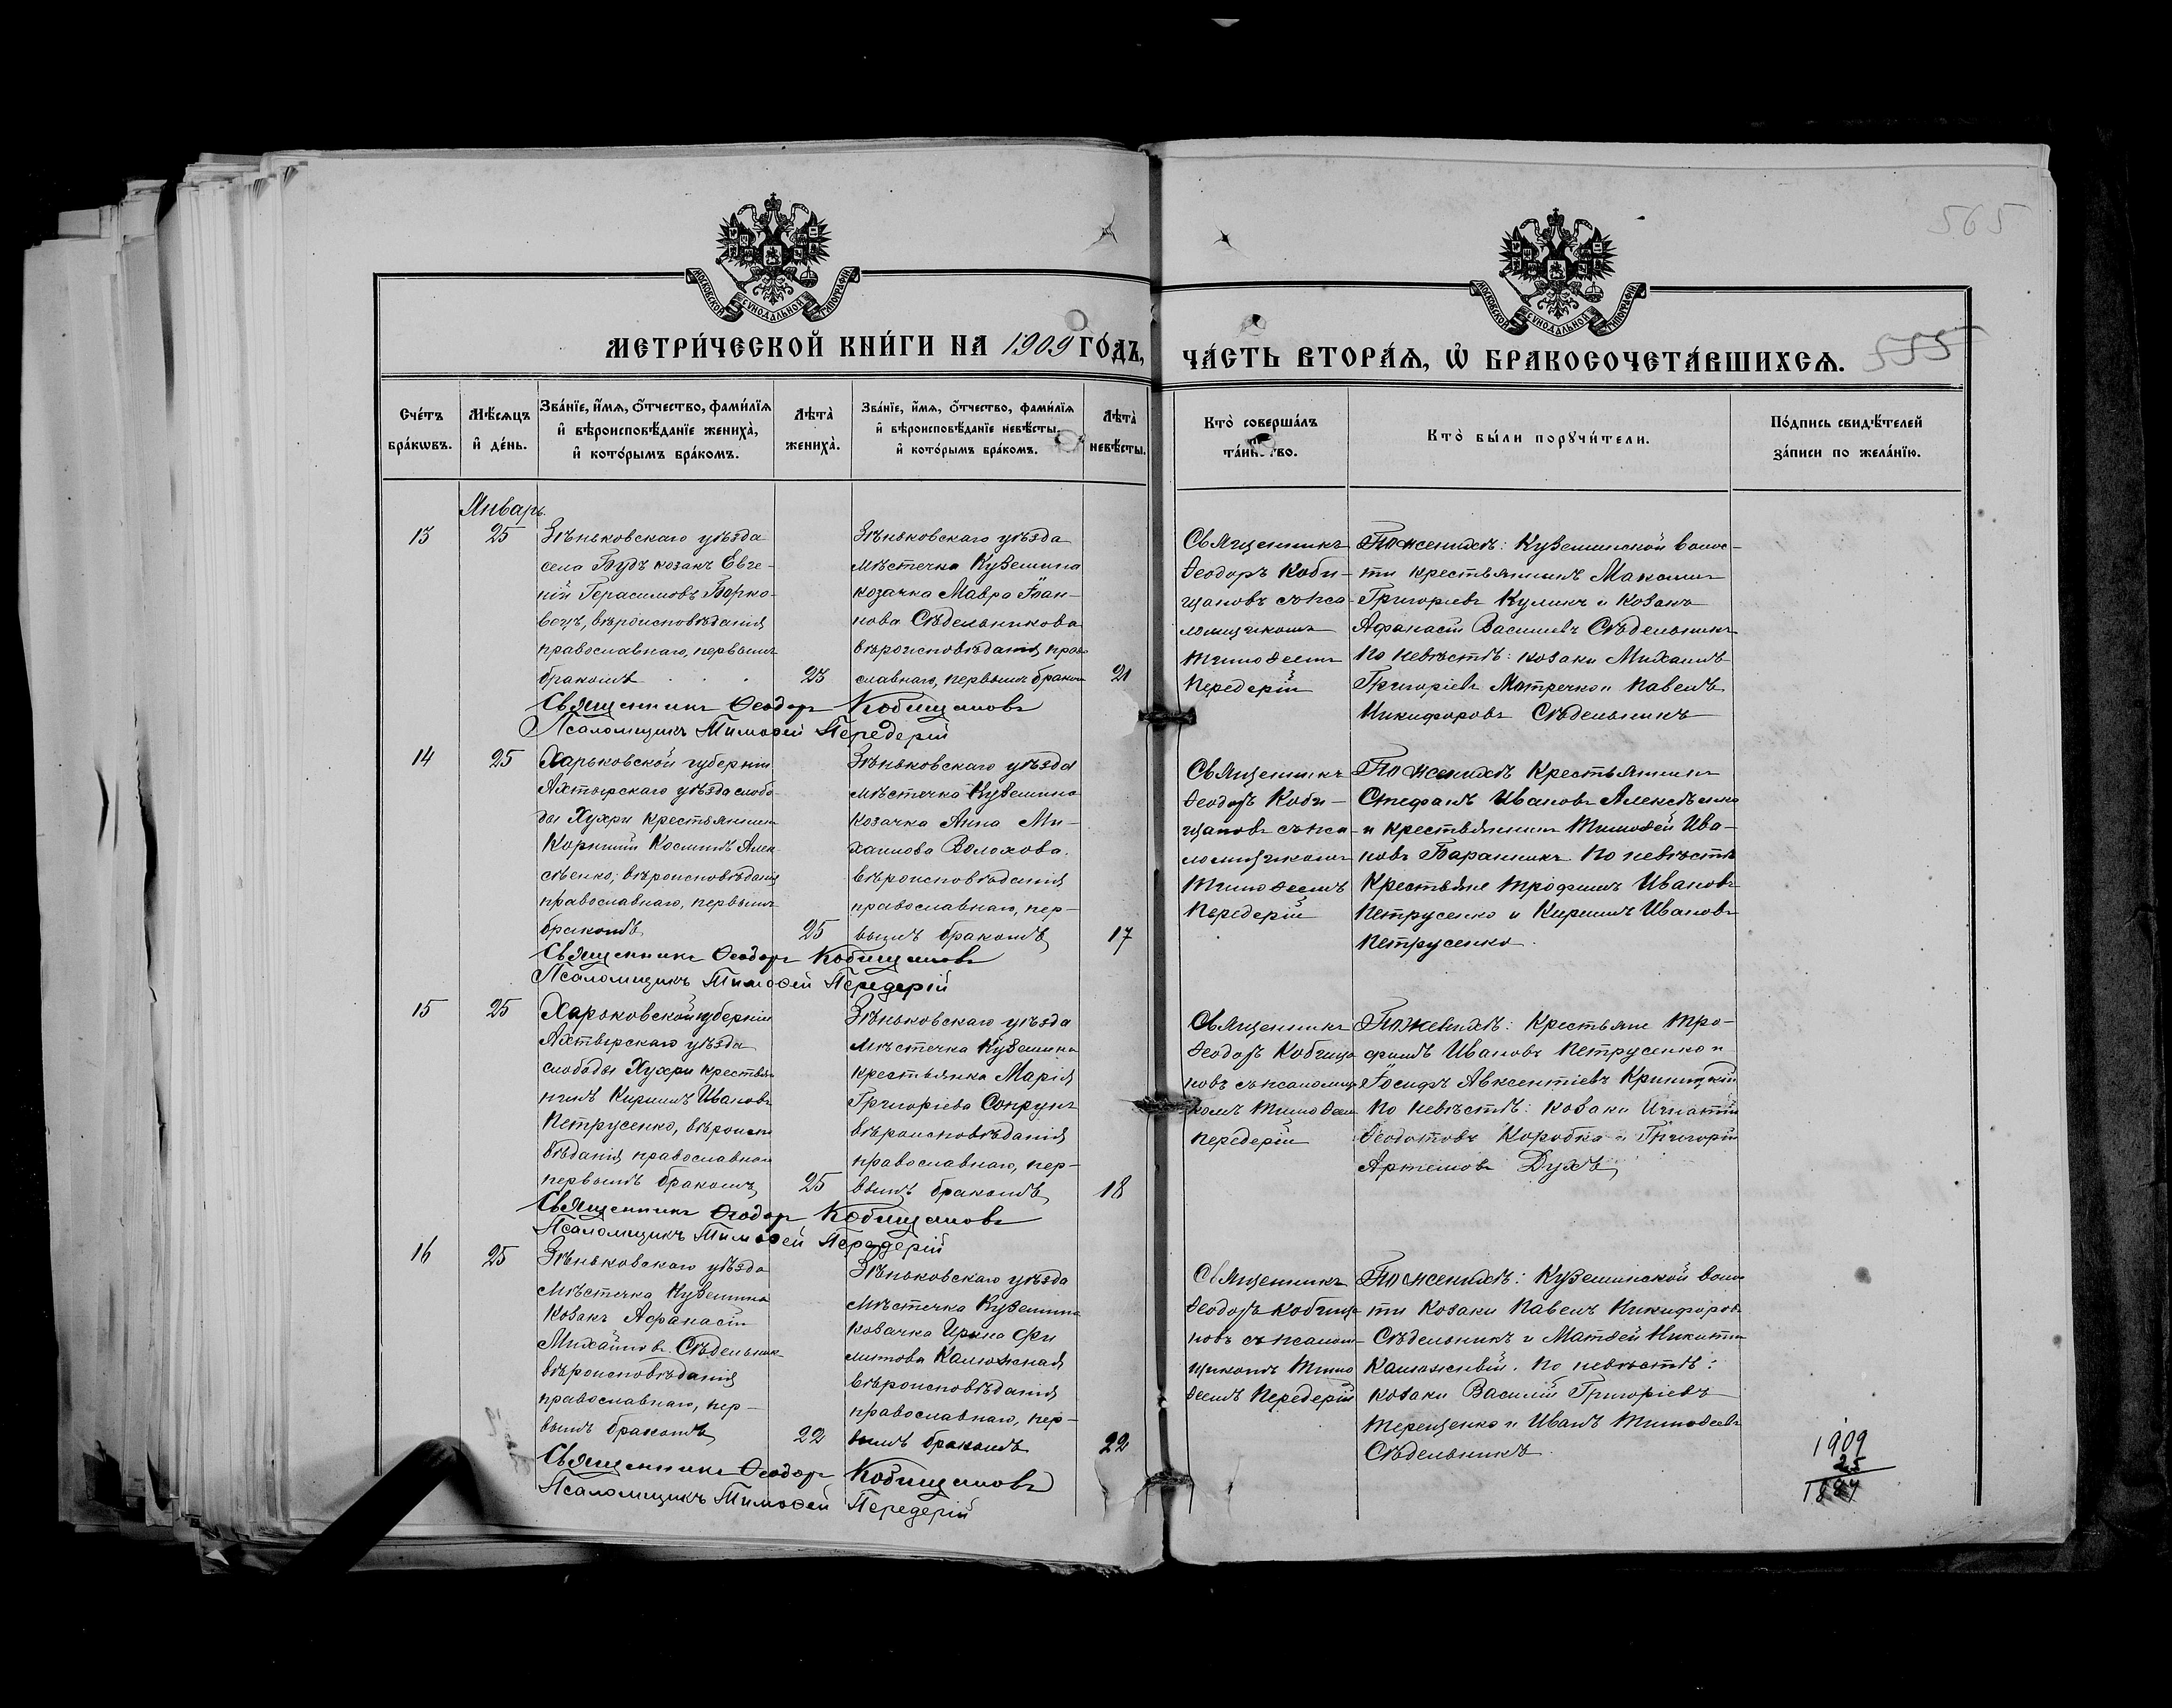 565
МОСКОВСКОЙ СѴНОДАЛЬНОЙ ТИПОГРАФІИ
МОСКОВСКОЙ СѴНОДАЛЬНОЙ ТИПОГРАФІИ
МЕТРИ́ЧЕСКОЙ КНИ́ГИ НА 1909 ГО́ДЪ,
ЧА́СТЬ ВТОРА́Ѧ, Ѡ҆ БРАКОСОЧЕТА́ВШИХСѦ.
555
Сче́тъ
бра́кѡвъ.
Мѣ́сѧцъ
и҆ де́нь.
Зва́нїе, и҆́мѧ, ѻ҆́тчество, фами́лїѧ
и҆ вѣроисповѣ́данїе жениха̀,
и҆ кото́рымъ бра́комъ.
Лѣта̀
жениха̀.
Зва́нїе, и҆́мѧ, ѻ҆́тчество, фами́лїѧ
и҆ вѣроисповѣ́данїе невѣ́сты,
и҆ кото́рымъ бра́комъ.
Лѣта̀
невѣ́сты.
Кто̀ соверша́лъ
та́инство.
Кто̀ бы́ли порꙋчи́тели.
По́дпись свидѣ́телей
за́писи по жела́нїю.
Январь.
13
25
Зѣньковскаго уѣзда
села Будъ козакъ Евге-
ній Герасимовъ Борко-
вецъ, вѣроисповѣданія
православнаго, первымъ
бракомъ
23
Зѣньковскаго уѣзда
мѣстечка Куземина
козачка Мавра Іоан-
нова Сѣдельникова
вѣроисповѣданія право
славнаго, первымъ браком
21
Священникъ
Ѳеодоръ Коби-
щановъ съ пса-
ломщикомъ
Тимоѳеемъ
Передерій
По женихѣ: Куземинской волос-
ти крестьянинъ Максимъ
Григорьевъ Куликъ и козакъ
Афанасій Васильевъ Сѣдельникъ
По невѣстѣ: козаки Михаилъ
Григоріевъ Матречко и Павелъ
Никифоровъ Сѣдельникъ
Священникъ Ѳеодоръ Кобищановъ
Псаломщикъ Тимоѳей Передерій
14
25
Харьковской губерніи
Ахтырскаго уѣзда слобо
ды Хухри крестьянинъ
Корнилій Косминъ Алек
сѣенко, вѣроисповѣданія
православнаго, первымъ
бракомъ
25
Зѣньковскаго уѣзда
мѣстечка Куземина
козачка Анна Ми-
хаилова Волохова.
вѣроисповѣданія
православнаго, пер-
вымъ бракомъ
17
Священникъ
Ѳеодоръ Коби-
щановъ съ пса-
ломщикомъ
Тимоѳеемъ
Передерій
По женихѣ крестьянинъ
Стефанъ Ивановъ Алексѣенко
и крестьянинъ Тимоѳей Ива-
новъ Баранникъ По невѣстѣ
крестьяне Трофимъ Ивановъ
Петрусенко и Кириллъ Ивановъ
Петрусенко.
Священникъ Ѳеодоръ Кобищановъ
Псаломщикъ Тимоѳей Передерій
15
25
Харьковской губерніи
Ахтырскаго уѣзда
слободы Хухри крестья
нинъ Кириллъ Ивановъ
Петрусенко, вѣроиспо
вѣданія православнаго
первымъ бракомъ
25
Зѣньковскаго уѣзда
мѣстечка Куземина
крестьянка Марія
Григоріева Сопрунъ
вѣроисповѣданія
православнаго, пер-
вымъ бракомъ
18
Священникъ
Ѳеодоръ Кобища
новъ съ псаломщи
комъ Тимоѳеем
Передерій
По женихѣ: крестьяне Тро-
фимъ Ивановъ Петрусенко и
Іосифъ Авксентіевъ Криницкій
По невѣстѣ: козаки Игнатій
Ѳеодотовъ Коробка и Григорій
Артемовъ Духъ
Священникъ Ѳеодоръ Кобищановъ
Псаломщикъ Тимоѳей Передерій
16
25
Зѣньковскаго уѣзда
мѣстечка Куземина
козакъ Афанасій
Михайловъ Сѣдельник
вѣроисповѣданія
православнаго, пер-
вымъ бракомъ
22
Зѣньковскаго уѣзда
мѣстечка Куземина
козачка Ирина Фи
липова Калюжная
вѣроисповѣданія
православнаго, пер-
вымъ бракомъ
22
Священникъ
Ѳеодоръ Кобища
новъ съ псалом-
щикомъ Тимо
ѳеемъ Передерій
По женихѣ: Куземинской волос
ти козаки Павелъ Никифоров
Сѣдельникъ и Матѳей Никитин
Калюжный. По невѣстѣ:
козаки Василій Григоріевъ
Терещенко и Иванъ Тимоѳеевъ
Сѣдельникъ.
Священникъ Ѳеодоръ Кобищановъ
Псаломщикъ Тимоѳей Передерій
1909
25